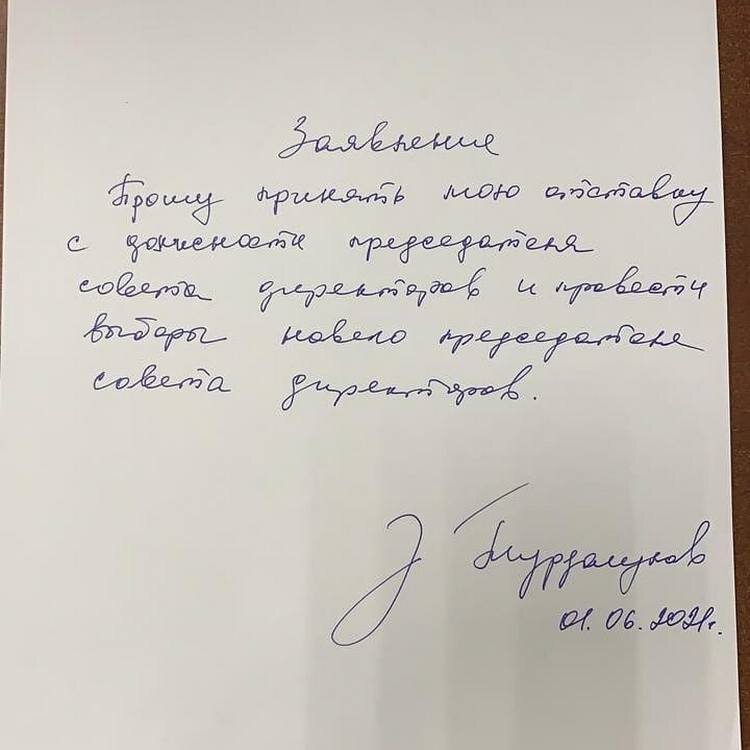 Заявление
Прошу принять мою отставку
с должности председателя
совета директоров и провести
выборы нового председателя
совета директоров.
Турдалунов
01.06.2021г.